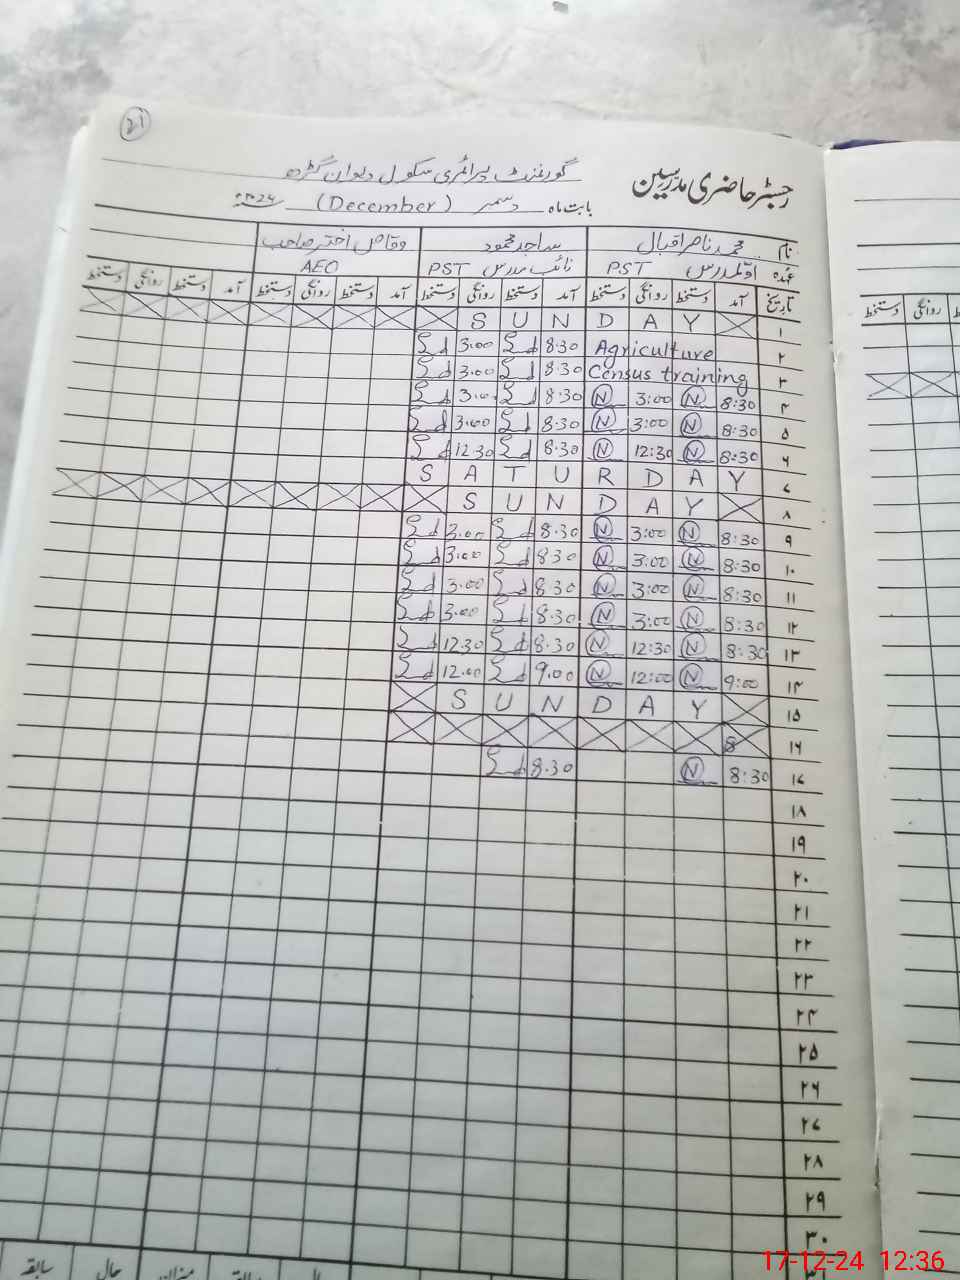 21
رجسٹر حاضری مدرسین گورنمنٹ پرائمری سکول دیوان گڑھ
بابت ماہ دسمبر (December) ۲۰۲۴ء
نام محمد ناصر اقبال ساجد محمود وقاص اختر صاحب
عہدہ اوّل مدرس PST نائب مدرس PST AEO
تاریخ آمد دستخط روانگی دستخط آمد دستخط روانگی دستخط آمد دستخط روانگی دستخط آمد دستخط روانگی دستخط
۱ SUNDAY
۲ Agriculture 8.30 3.00
۳ Census training 8.30 3.00
۴ 8:30 N 3:00 N 8.30 3.00
۵ 8:30 N 3:00 N 8.30 3.00
۶ 8:30 N 12:30 N 8.30 12.30
۷ SATURDAY
۸ SUNDAY
۹ 8:30 N 3:00 N 8.30 3.00
۱۰ 8:30 N 3:00 N 8.30 3.00
۱۱ 8:30 N 3:00 N 8.30 3.00
۱۲ 8:30 N 3:00 N 8.30 3.00
۱۳ 8:30 N 12:30 N 8.30 12.30
۱۴ 9:00 N 12:00 N 9.00 12.00
۱۵ SUNDAY
۱۶ 8
۱۷ 8:30 N 8.30
۱۸
۱۹
۲۰
۲۱
۲۲
۲۳
۲۴
۲۵
۲۶
۲۷
۲۸
۲۹
۳۰
میزان حال سابقہ
روانگی دستخط
17-12-24 12:36